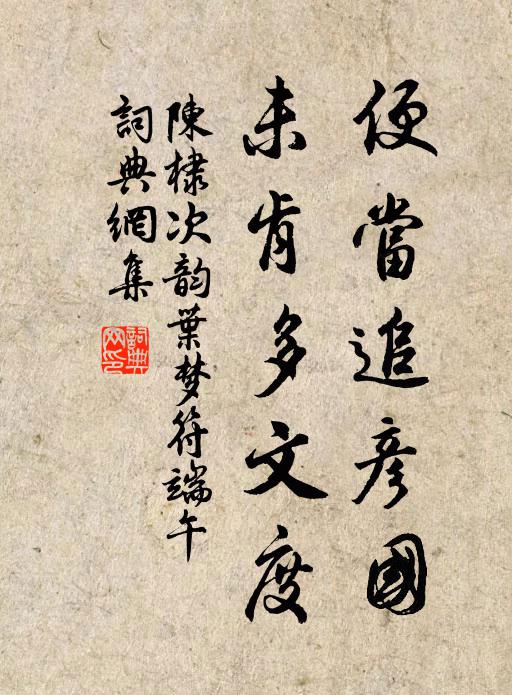 便當追彥國
未肯多文度
陳棣次韵葉梦符端午
詞典網集
詞典网印